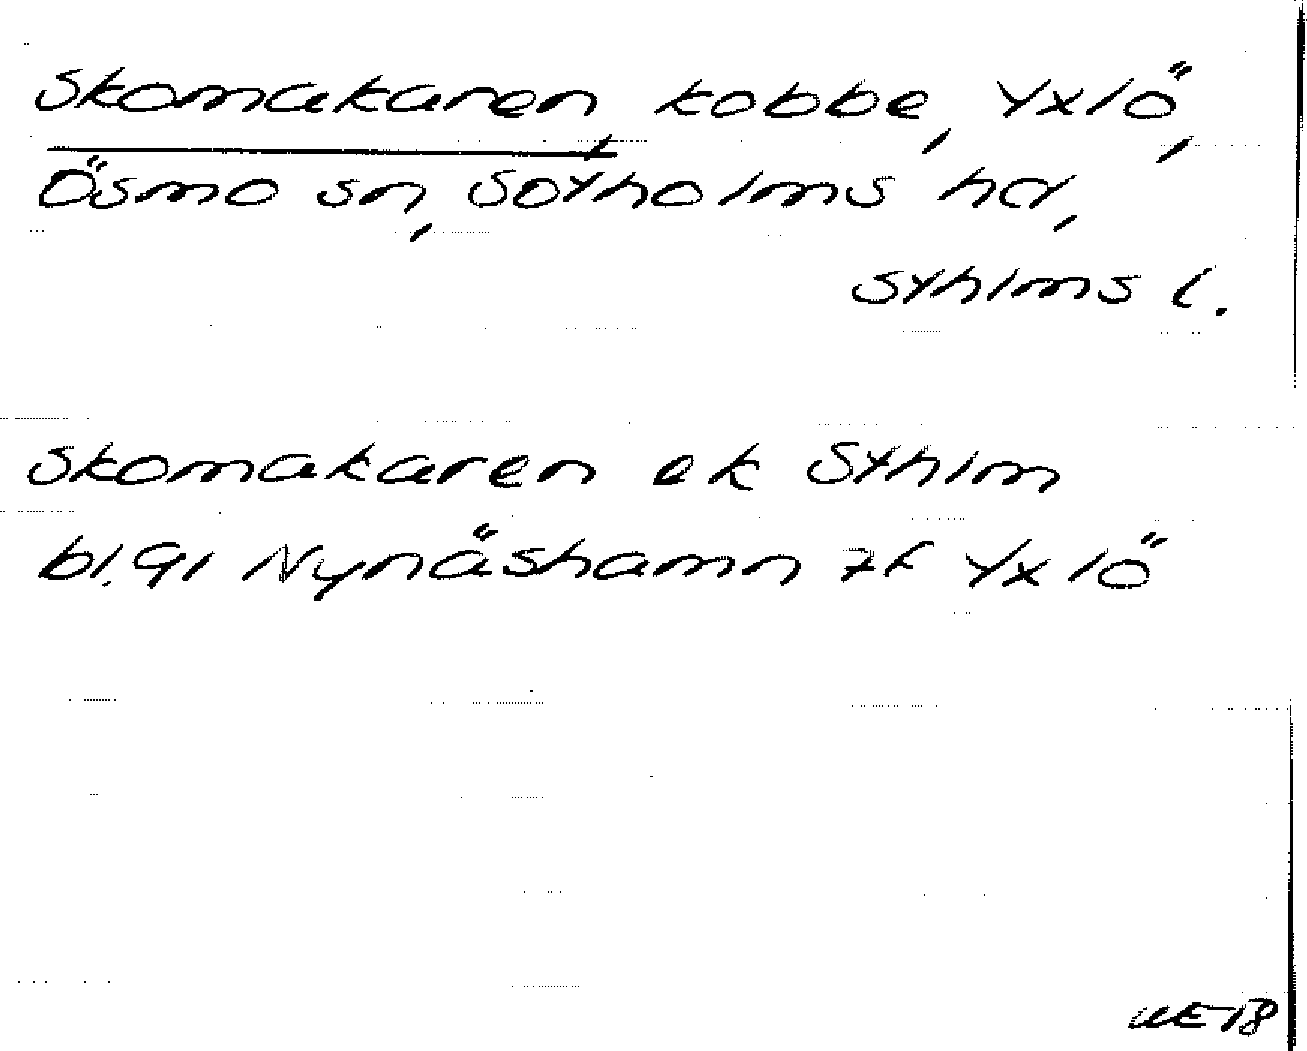 Skomakaren, kobbe, Yxlö,
Ösmo sn, Sotholms hd,
Sthlms l.
Skomakaren ek Sthlm
bl. 91 Nynäshamn 7f Yxlö